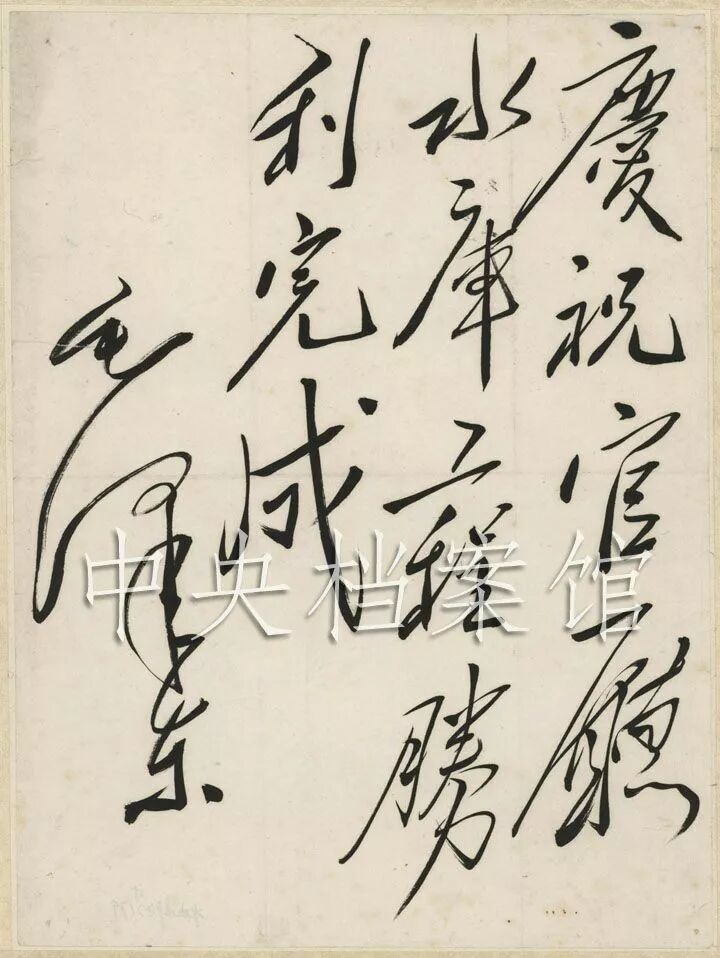 慶祝官廳
水庫工程勝
利完成
毛泽东
中央档案馆